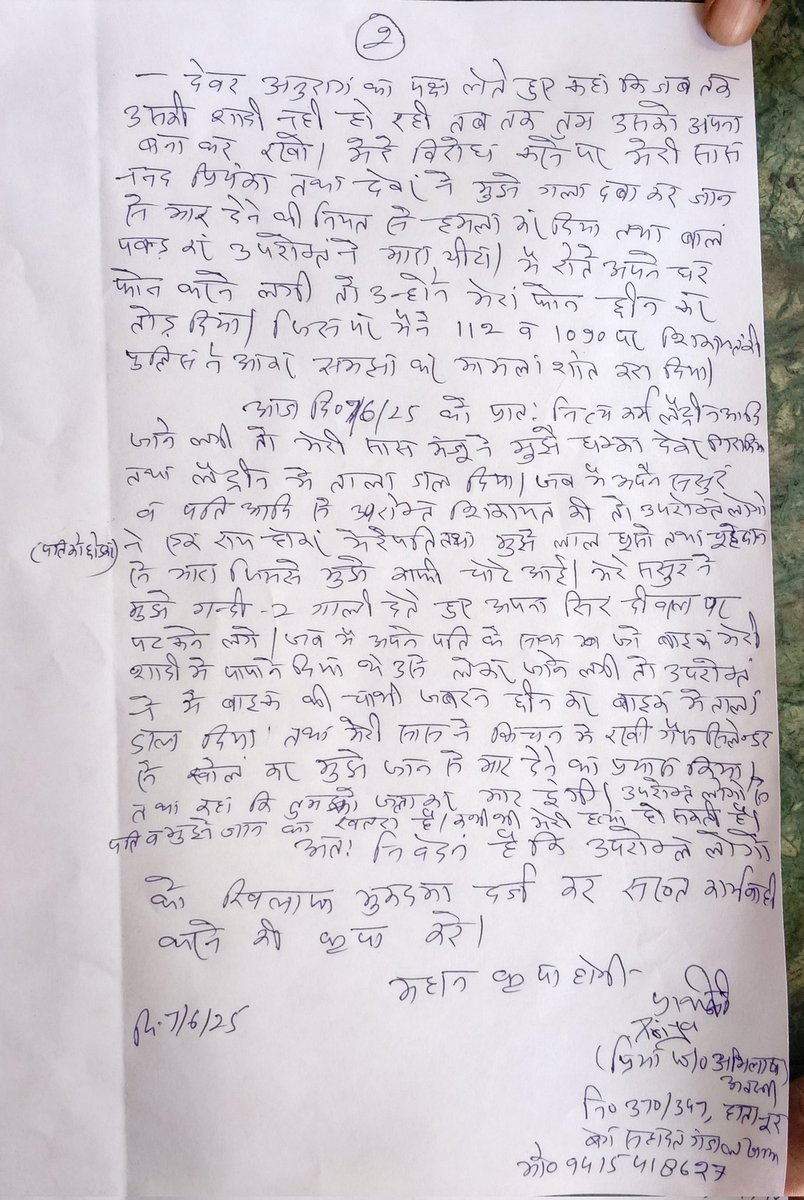 २
— देवर अनुराग का पक्ष लेते हुए कहा कि जब तक
उसकी शादी नही हो रही तब तक तुम उसको अपना
बना कर रखो। मेरे विरोध करने पर मेरी सास
ननद प्रियंका तथा देवर ने मुझे गला दबा कर जान
से मार देने की नियत से हमला कर दिया तथा बाल
पकड़ कर उपरोक्त ने मारा पीटा। मै रोते अपने घर
फोन करने लगी तो उन्होने मेरा फोन छीन कर
तोड़ दिया। जिस पर मैने 112 व 1090 पर शिकायत की
पुलिस ने आकर समझा कर मामला शांत करा दिया।
आज दि० 7/6/25 को प्रात: नित्य कर्म लैट्रीन आदि
जाने लगी तो मेरी सास मंजू ने मुझे धक्का देकर गिरा दिया
तथा लैट्रीन मे ताला डाल दिया। जब मै अपने ससुर
व पति आदि से उपरोक्त शिकायत की तो उपरोक्त लोगो
(पति को छोड़कर) ने एक राय होकर मेरे पति तथा मुझे लात घूसो तथा
से मारा जिससे मुझे काफी चोटे आई। मेरे ससुर ने
मुझे गन्दी-2 गाली देते हुए अपना सिर दीवाल पर
पटकने लगे। जब मै अपने पति के साथ जो बाइक मेरी
शादी मे पापा ने दिया थे उसे लेकर जाने लगी तो उपरोक्त
ने बाइक की चाभी जबरन छीन कर बाइक मे ताला
डाल दिया तथा मेरी सास ने किचन मे रखी गैस सिलेन्डर
से खोल कर मुझे जान से मार देने का प्रयास किया।
तथा कहा कि तुमको जला कर मार दूंगी। उपरोक्त लोगो से
पति व मुझे जान का खतरा है। कभी भी मेरी हत्या हो सकती है।
अत: निवेदन है कि उपरोक्त लोगो
के खिलाफ मुकदमा दर्ज कर सख्त कार्यवाही
करने की कृपा करे।
महान कृपा होगी-
प्रार्थिनी
दि. 7/6/25
(प्रिया W/o अभिलाष
अवस्थी
नि० 370/347, हाता नूर
बेग सहादतगंज लखनऊ
मो० 9415418627